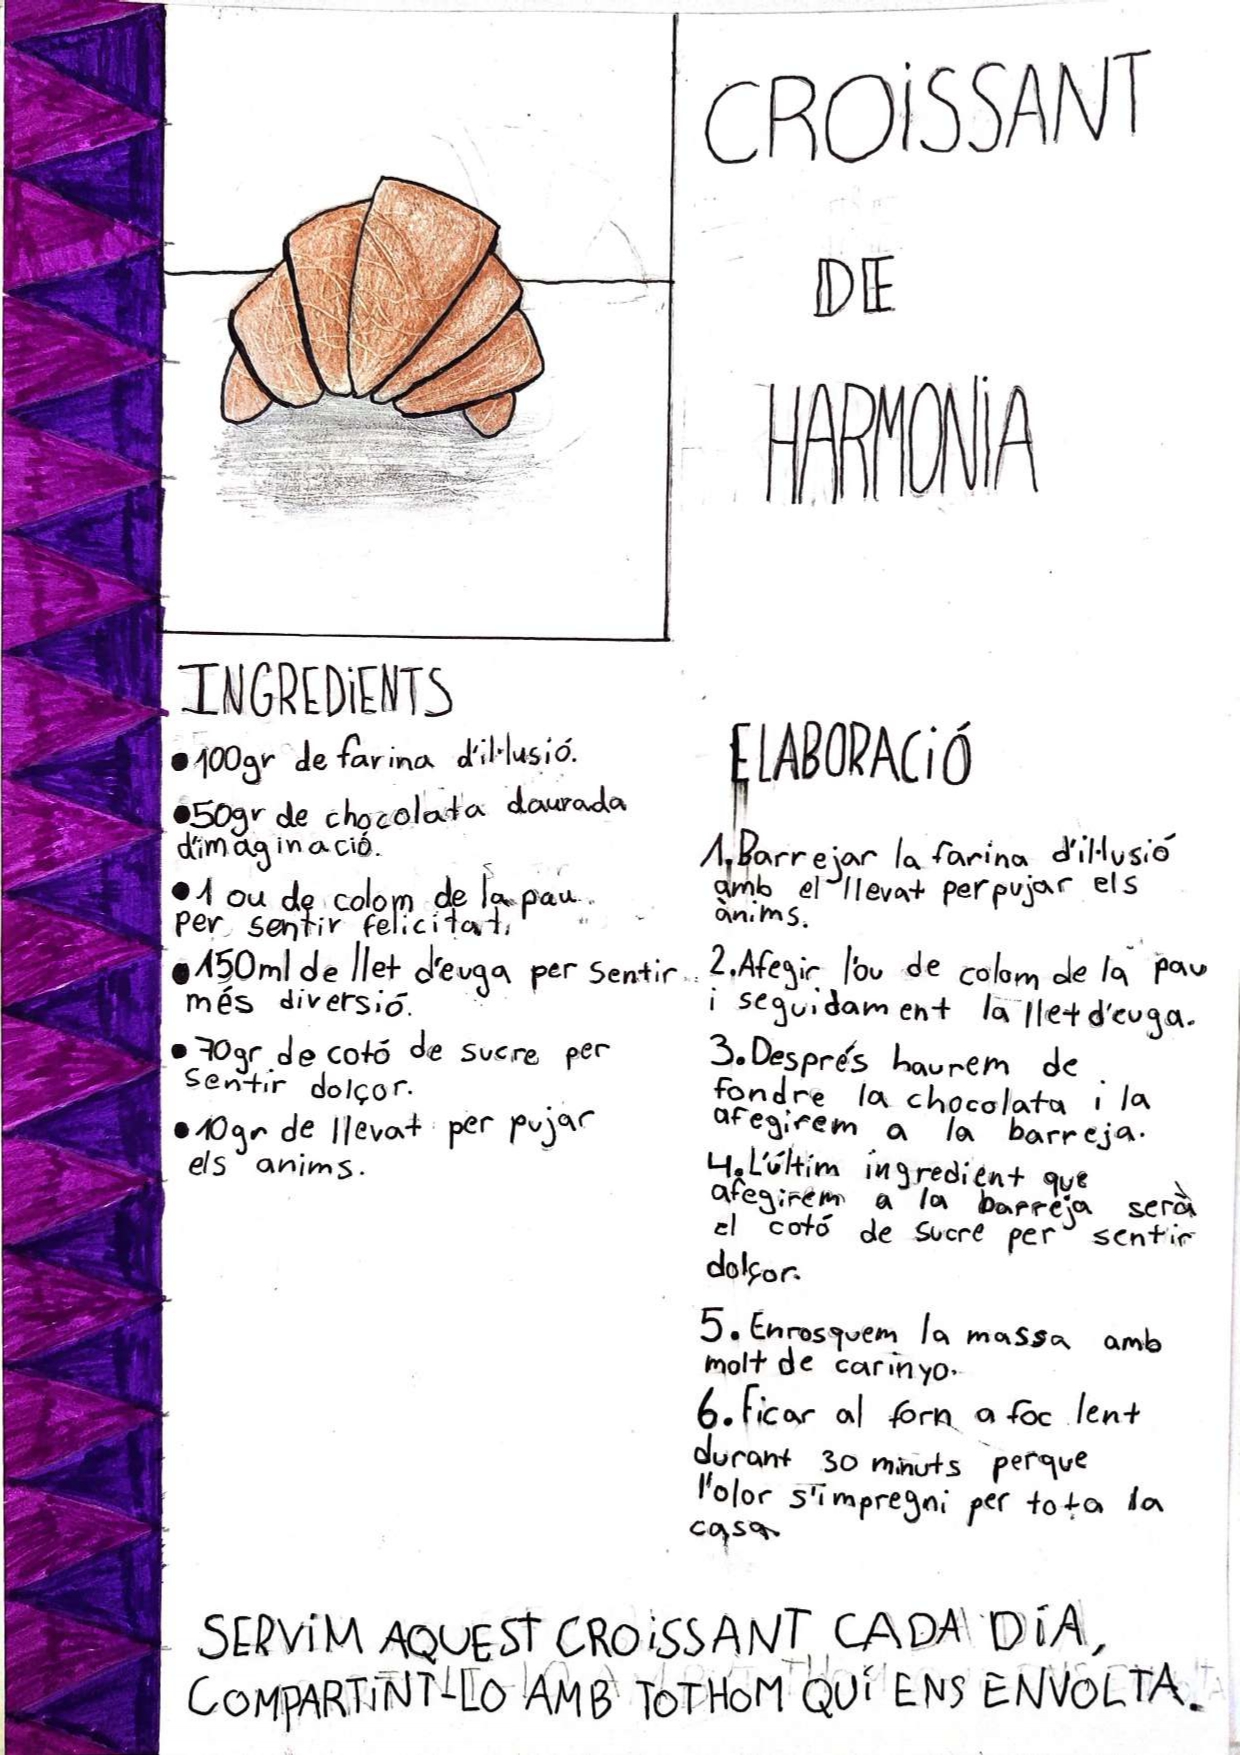 CROiSSANT
DE
HARMONiA
INGREDiENTS
●100gr de farina d'il·lusió.
●50gr de chocolata daurada
d'imaginació.
●1 ou de colom de la pau
per sentir felicitat.
●150ml de llet d'euga per sentir
més diversió.
●70gr de cotó de sucre per
sentir dolçor.
●10gr de llevat per pujar
els anims.
ELABORACiÓ
1.Barrejar la farina d'il·lusió
amb el llevat per pujar els
ànims.
2.Afegir l'ou de colom de la pau
i seguidament la llet d'euga.
3.Després haurem de
fondre la chocolata i la
afegirem a la barreja.
4.L'últim ingredient que
afegirem a la barreja serà
el cotó de sucre per sentir
dolçor.
5.Enrosquem la massa amb
molt de carinyo.
6.Ficar al forn a foc lent
durant 30 minuts perque
l'olor s'impregni per tota la
casa.
SERViM AQUEST CROiSSANT CADA DiA,
COMPARTiNT-LO AMB TOTHOM QUi ENS ENVOLTA.